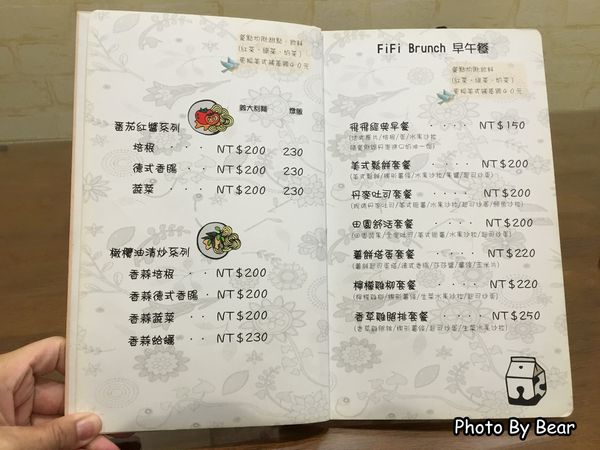 餐點均附甜點、飲料
(紅茶、綠茶、奶茶)
更換美式咖啡補40元
義大利麵 燉飯
蕃茄紅醬系列
培根 ‧‧ NT$200 230
德式香腸 ‧‧ NT$200 230
蔬菜 ‧‧ NT$200 230
橄欖油清炒系列
香蒜培根 ‧‧ NT$200
香蒜德式香腸 ‧ NT$200
香蒜蔬菜 ‧‧ NT$200
香蒜蛤蠣 ‧‧ NT$230
FiFi Brunch 早午餐
餐點均附飲料
(紅茶、綠茶、奶茶)
更換美式咖啡補40元
飛飛經典早餐 ‧‧‧‧ NT$150
美式鬆餅套餐 ‧‧‧‧ NT$200
丹麥吐司套餐 ‧‧‧‧ NT$200
田園舒活套餐 ‧‧‧‧ NT$200
薯餅塔蛋套餐 ‧‧‧‧ NT$220
檸檬雞柳套餐 ‧‧‧‧ NT$220
香草雞腿排套餐 ‧‧‧ NT$250
Photo By Bear